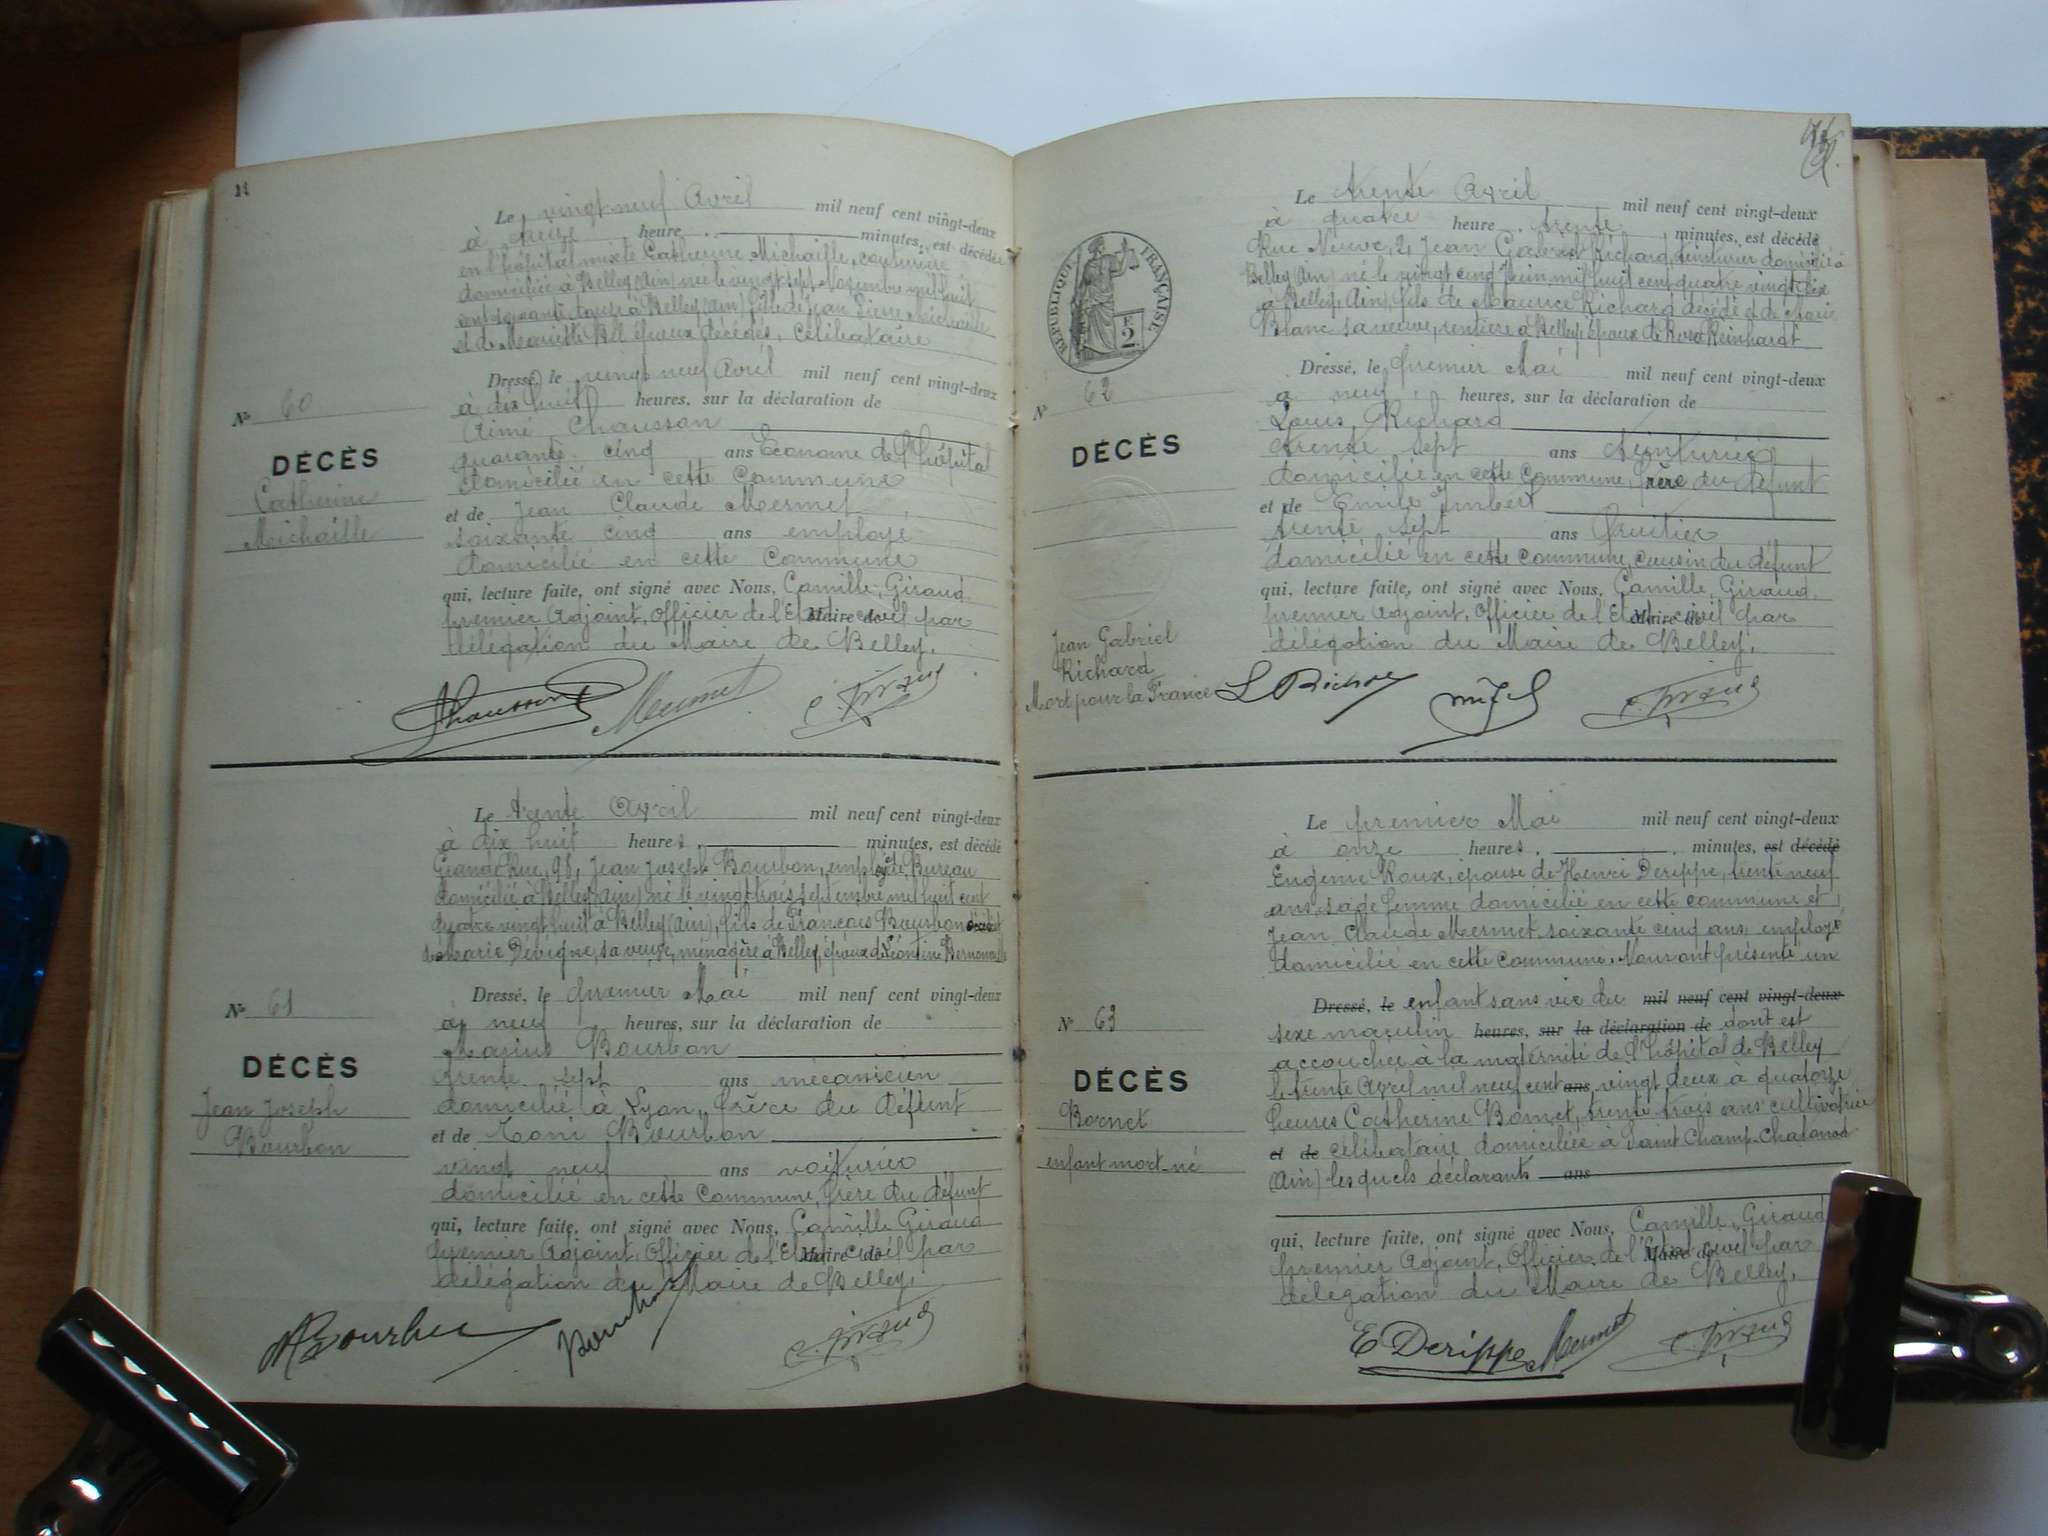 11
Le vingt neuf Avril mil neuf cent vingt-deux
à heure minutes, est décédée
en l'hôpital mixte Catherine Michaille, couturière
domiciliée à Belley (Ain) née le vingt sept Novembre mil huit
cent soixante à Belley (Ain) fille de Jean Pierre Michaille
et de Mariette Bel époux décédés, Célibataire
Dressé, le vingt neuf Avril mil neuf cent vingt-deux
à dix huit heures, sur la déclaration de
Aimé Chausson
quarante cinq ans Econome de l'hôpital
domicilié en cette Commune
et de Jean Claude Mermet
soixante cinq ans employé
domicilié en cette Commune
qui, lecture faite, ont signé avec Nous, Camille Giraud
premier Adjoint, Officier de l'Etat civil par
Maire de
délégation du Maire de Belley.
N° 60
DÉCÈS
Catherine
Michaille
Chausson Mermet C. Giraud
Le trente Avril mil neuf cent vingt-deux
à dix huit heures minutes, est décédé
Grande Rue, 98, Jean Joseph Bourbon, employé de Bureau
domicilié à Belley (Ain) né le vingt trois septembre mil huit cent
quatre vingt huit à Belley (Ain), fils de François Bourbon décédé et
de Marie Dévigne, sa veuve, ménagère à Belley, époux de Léontine
Dressé, le premier Mai mil neuf cent vingt-deux
à neuf heures, sur la déclaration de
Marius Bourbon
trente sept ans mécanicien
domicilié à Lyon, frère du défunt
et de Toni Bourbon
vingt neuf ans voiturier
domicilié en cette Commune, frère du défunt
qui, lecture faite, ont signé avec Nous, Camille Giraud
premier Adjoint, Officier de l'Etat civil par
Maire de
délégation du Maire de Belley.
N° 61
DÉCÈS
Jean Joseph
Bourbon
M Bourbon Bourbon C. Giraud
Le trente Avril mil neuf cent vingt-deux
à quatre heure trente minutes, est décédé
Rue Neuve, 2, Jean Gabriel Richard, teinturier domicilié à
Belley (Ain) né le vingt cinq Juin mil huit cent quatre vingt dix
à Belley (Ain), fils de Maurice Richard décédé et de Marie
Blanc sa veuve, rentière à Belley, époux de Rosa Reinhardt
Dressé, le premier Mai mil neuf cent vingt-deux
à neuf heures, sur la déclaration de
Louis Richard
trente sept ans teinturier
domicilié en cette Commune, frère du défunt
et de Emile Imbert
trente sept ans fruitier
domicilié en cette commune, cousin du défunt
qui, lecture faite, ont signé avec Nous, Camille Giraud
premier Adjoint, Officier de l'Etat civil par
Maire de
délégation du Maire de Belley.
RÉPUBLIQUE FRANÇAISE
2 F
N° 62
DÉCÈS
Jean Gabriel
Richard
Mort pour la France
L Richard C. Giraud
Le premier Mai mil neuf cent vingt-deux
à onze heures minutes, est décédé
Eugénie Roux, épouse de Henri Derippe, trente neuf
ans, sage femme domiciliée en cette commune et
Jean Claude Mermet soixante cinq ans employé
domicilié en cette commune, Nous ont présenté un
Dressé, le enfant sans vie du mil neuf cent vingt-deux
sexe masculin heures, sur la déclaration de dont est
accouchée à la maternité de l'hôpital de Belley
le trente Avril mil neuf cent ans vingt deux à quatorze
heures Catherine Bornet, trente trois ans cultivatrice
et de célibataire domiciliée à Saint Champ-Chatonod
(Ain) lesquels déclarants ans
qui, lecture faite, ont signé avec Nous, Camille Giraud
premier Adjoint, Officier de l'Etat civil par
Maire de
délégation du Maire de Belley.
N° 63
DÉCÈS
Bornet
enfant mort-né
E Derippe Mermet C. Giraud